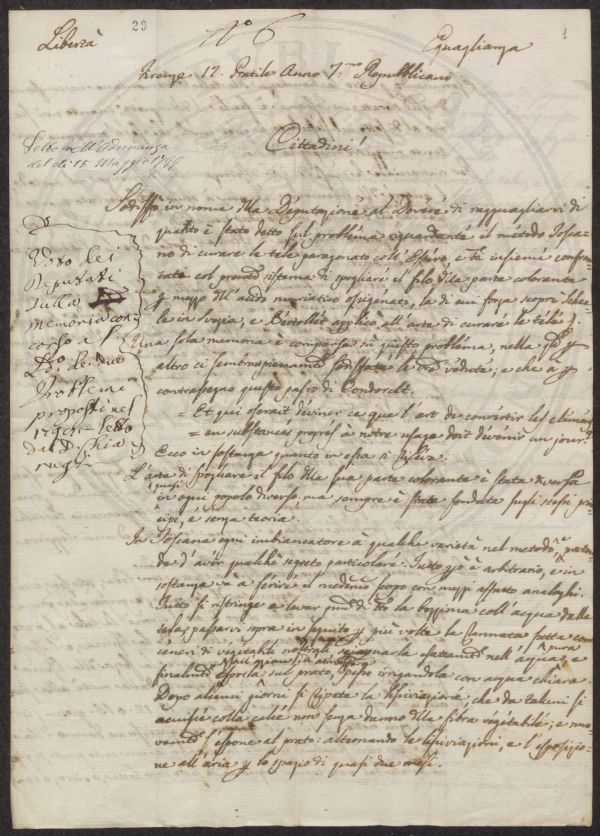 Libertà
23
N.° 6
Eguaglianza
1
Firenze 17. Pratile Anno 7.mo Repubblicano
Letto nell'Adunanza
del dì 15 Maggio 1799
Cittadini!
Sodisfò in nome della Deputazione al Dovere di ragguagliarvi di
quanto è stato detto sul problema riguardante il metodo Tosca-
no di curare le tele paragonato coll'Estero, e
col grande sistema di spogliare il filo della parte colorante
p mezzo dell'acido muriatico ossigenato, la di cui forza scoprì Schee-
le in Svezia, e Bertollet applicò all'arte di curare le tele.
Una sola memoria è comparsa su questo problema, nella
altro ci sembra pienamente sodisfatta la vedute; e che à p
contrassegno questo passo di Condorcet.
= Et qui oserait deviner ce que l'art de convertir les elemens
= en substances propres à notre usage doit devenir un jour?
Ecco in sostanza quanto in essa si
L'arte di spogliare il filo della sua parte colorante è stata diversa
quasi
in ogni popolo diverso. ma sempre è stata fondata sugli stessi prin
cipi, e senza teoria.
In Toscana ogni imbiancatore à qualche varietà nel metodo, e preten
de d'aver qualche segreto particolare. Tutto ciò è arbitrario, e in
sostanza và a ferire il medesimo scopo con mezzi affatto analoghi.
Tutto si ristringe a levar la bozzima coll'acqua dalle
tele, passarvi sopra in seguito p più volte la Rannata fatta con
ceneri di vegetabili esattamente nell'acqua pura e
finalmente esporla sul prato, spesso irrigandola con acqua chiara.
Dopo alcuni giorni si ripete la lisciviazione, che da taluni si
acuisce colla calce non senza danno della fibra vegetabile; e nuo-
vamente s'espone al prato: alternando le lisciviazioni, e l'esposizio-
ne all'aria p lo spazio di quasi due mesi.
Voto dei
Deputati
sulla
memoria con
corso a
de due
Problemi
proposti nel
letto
dal D. Chia
rugi